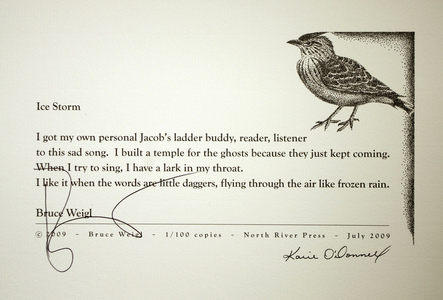 Ice Storm
I got my own personal Jacob's ladder buddy, reader, listener
to this sad song. I built a temple for the ghosts because they just kept coming.
When I try to sing, I have a lark in my throat.
I like it when the words are little daggers, flying through the air like frozen rain.
Bruce Weigl
© 2009 - Bruce Weigl - 1/100 copies - North River Press - July 2009
Karie O'Donnell